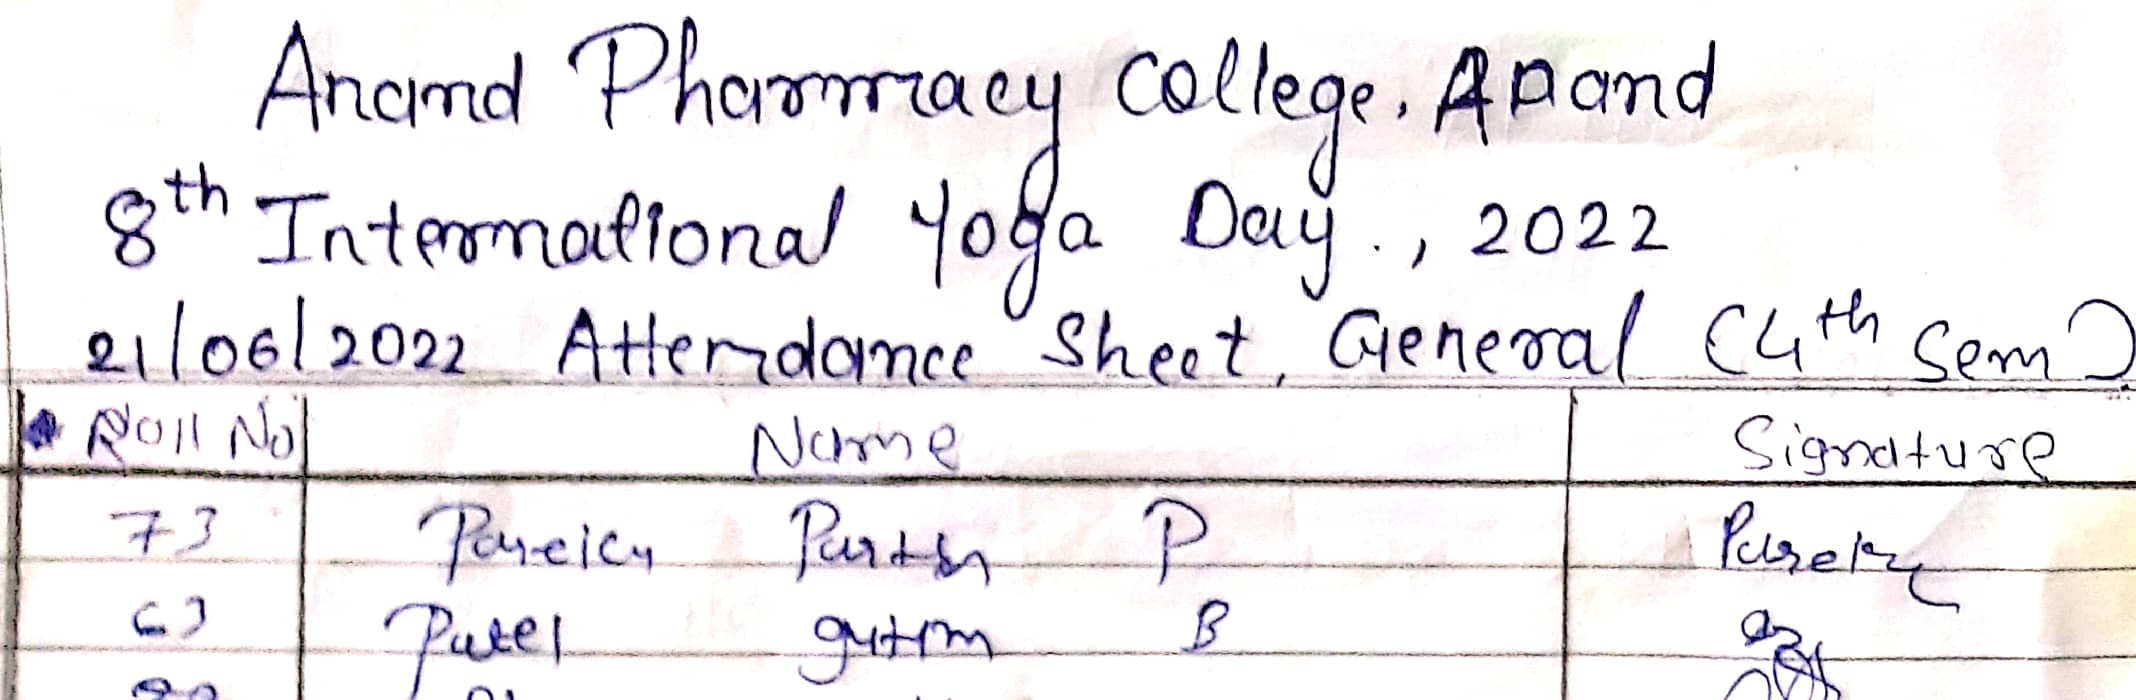 Anand Pharmacy College, Anand
8th International Yoga Day., 2022
21/06/2022 Attendance Sheet, General (4th Sem)
Roll No Name Signature
73 Parth P
63 Patel B